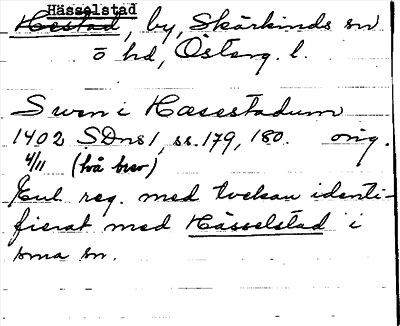 Hässelstad
Hestad, by, Skärkinds sn
ö hd, Österg. l.
Swen i Hæsestadum
1402 SDns 1, ss. 179, 180. orig.
4/11 (två brev)
Enl. reg. med tvekan identi-
fierat med Hässelstad i
sma sn.